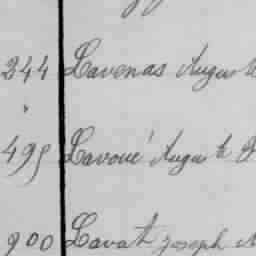 244 Lavenas Auguste
495 Lavoué Auguste
900 Lavat Joseph